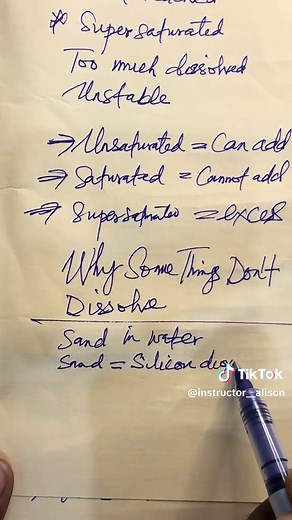 * Supersaturated
Too much dissolved
Unstable
→ Unsaturated = Can add
→ Saturated = Cannot add
→ Supersatrated = excess
Why Some Things Don't
Dissolve
Sand in water
Sand = Silicon
TikTok
@instructor_alison